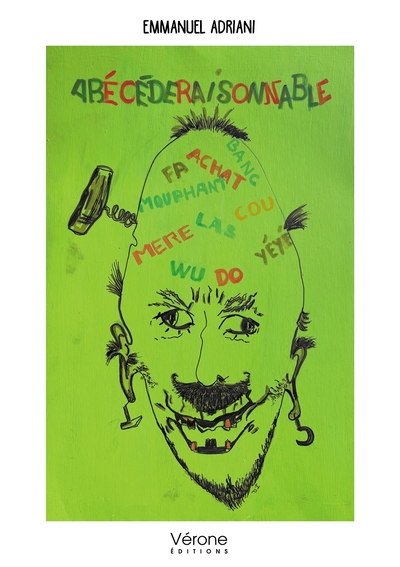 EMMANUEL ADRIANI
ABÉCÉDERAISONNABLE
BANC
ACHAT
FA
MOUPHANT
COU
LAS
MERE
YÉYÉ
WU DO
Vérone
ÉDITIONS